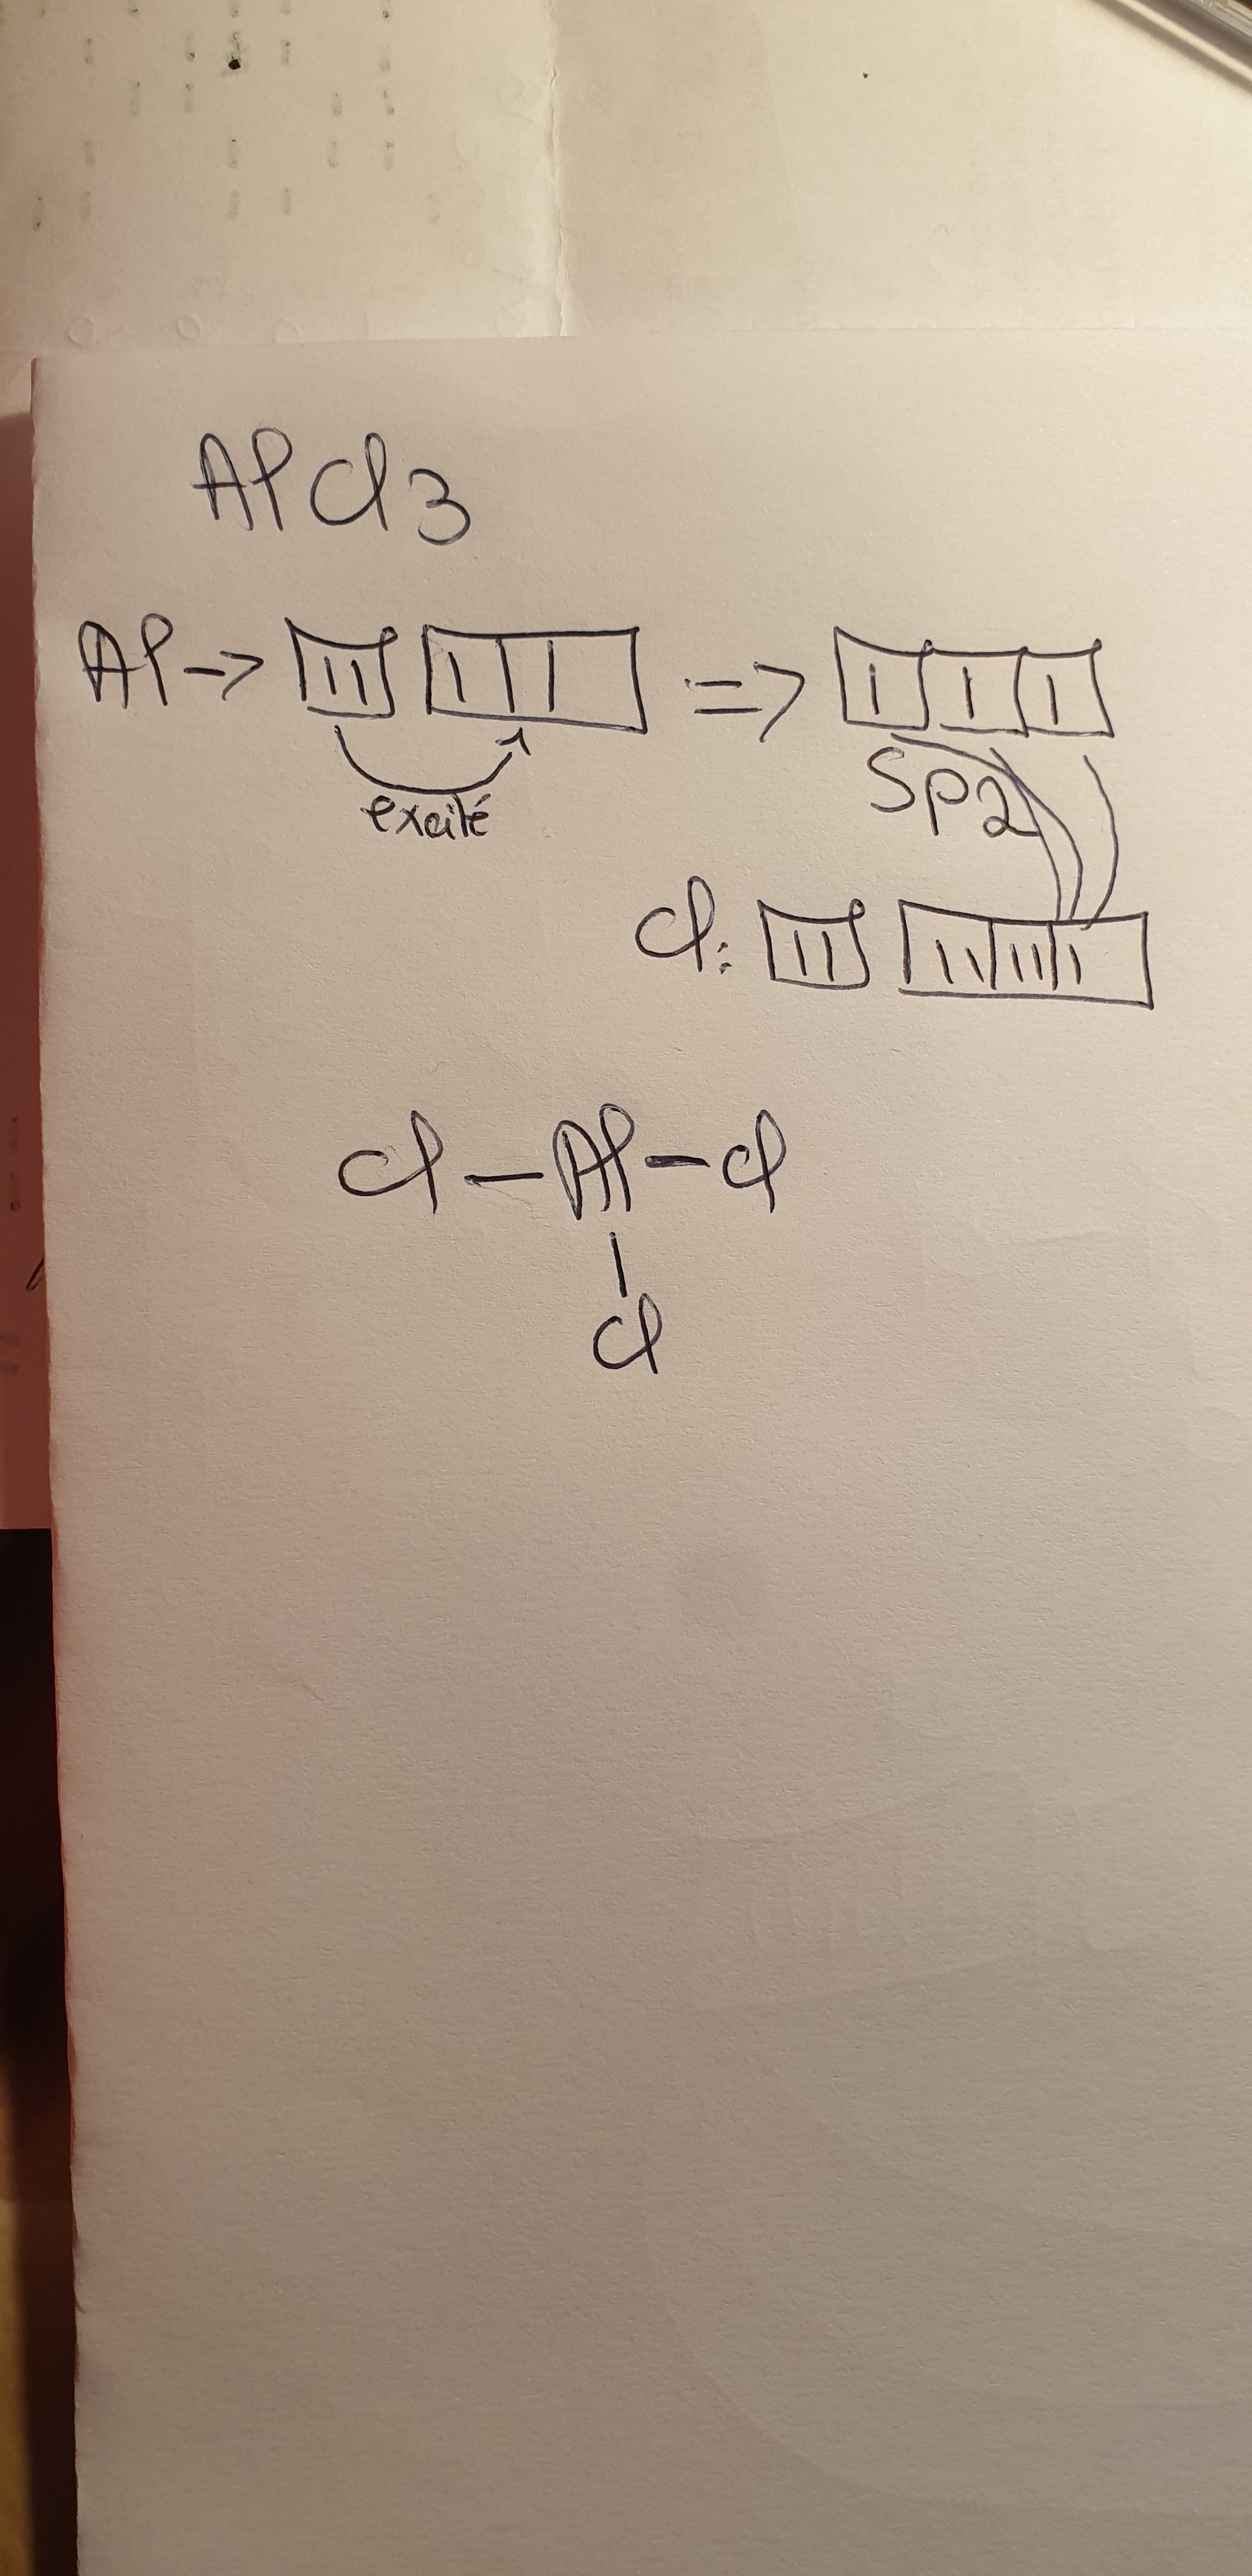 AlCl3
Al -> =>
excité
SP2
Cl:
Cl - Al - Cl
|
Cl